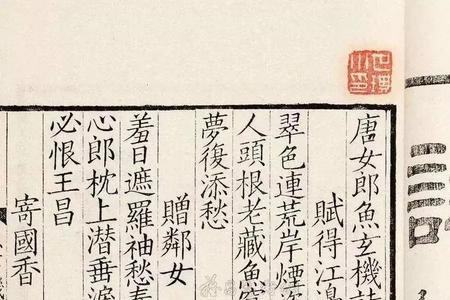 唐女郎魚玄機詩
賦得江邊
翠色連荒岸煙姿
人頭根老藏魚窟
夢復添愁
贈鄰女
羞日遮羅袖愁春
心郎枕上潜垂淚
必恨王昌
寄國香